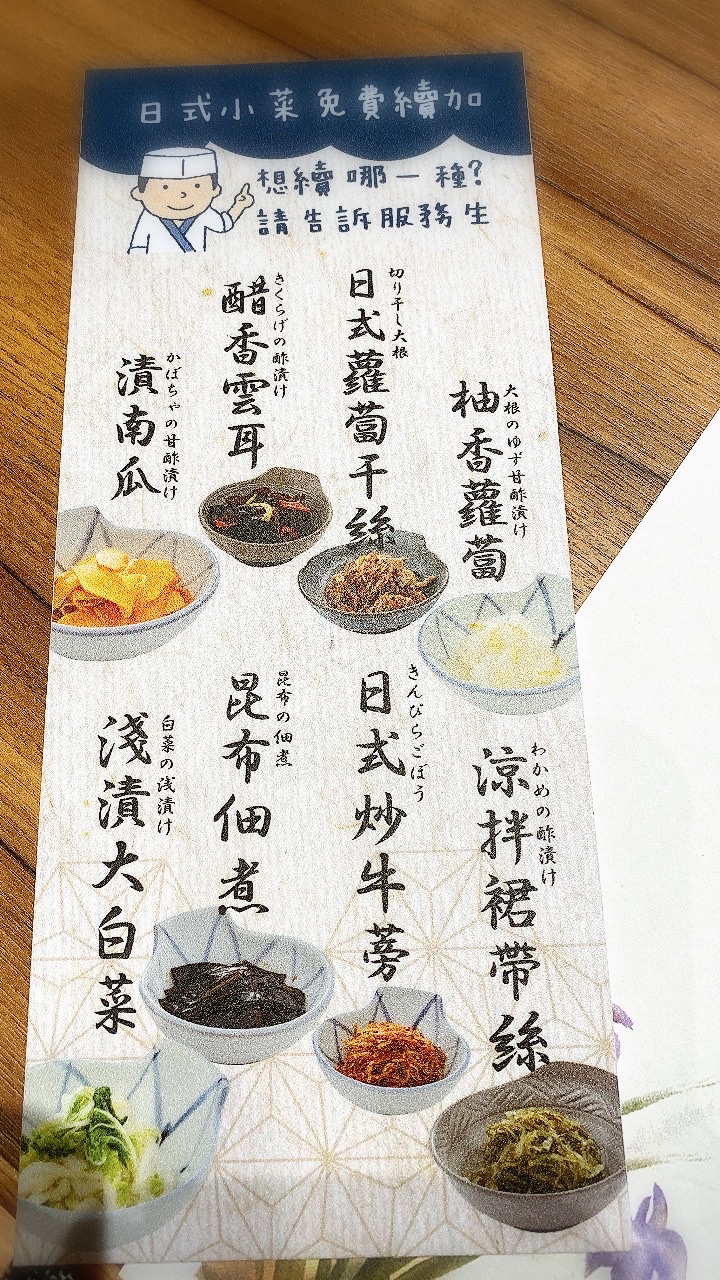 日式小菜免費續加
想續哪一種?
請告訴服務生
柚香蘿蔔
大根のゆず甘酢漬け
日式蘿蔔干絲
切り干し大根
醋香雲耳
きくらげの酢漬け
漬南瓜
かぼちゃの甘酢漬け
涼拌裙帶絲
わかめの酢漬け
日式炒牛蒡
きんぴらごぼう
昆布佃煮
昆布の佃煮
淺漬大白菜
白菜の浅漬け